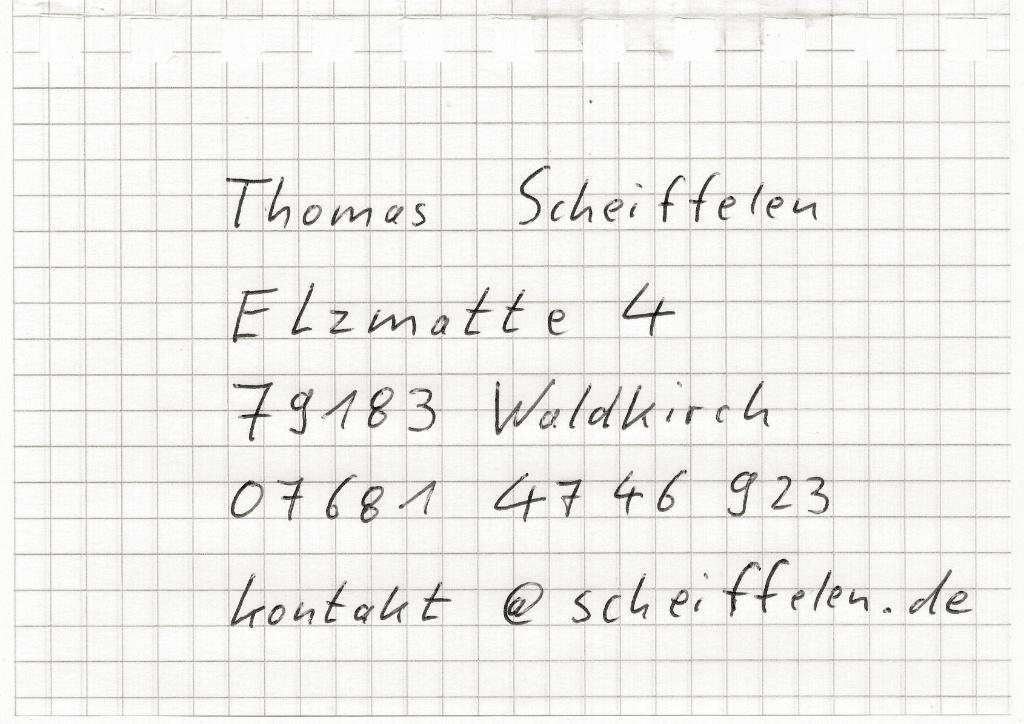 Thomas Scheiffelen
Elzmatte 4
79183 Waldkirch
07681 4746 923
kontakt @ scheiffelen.de